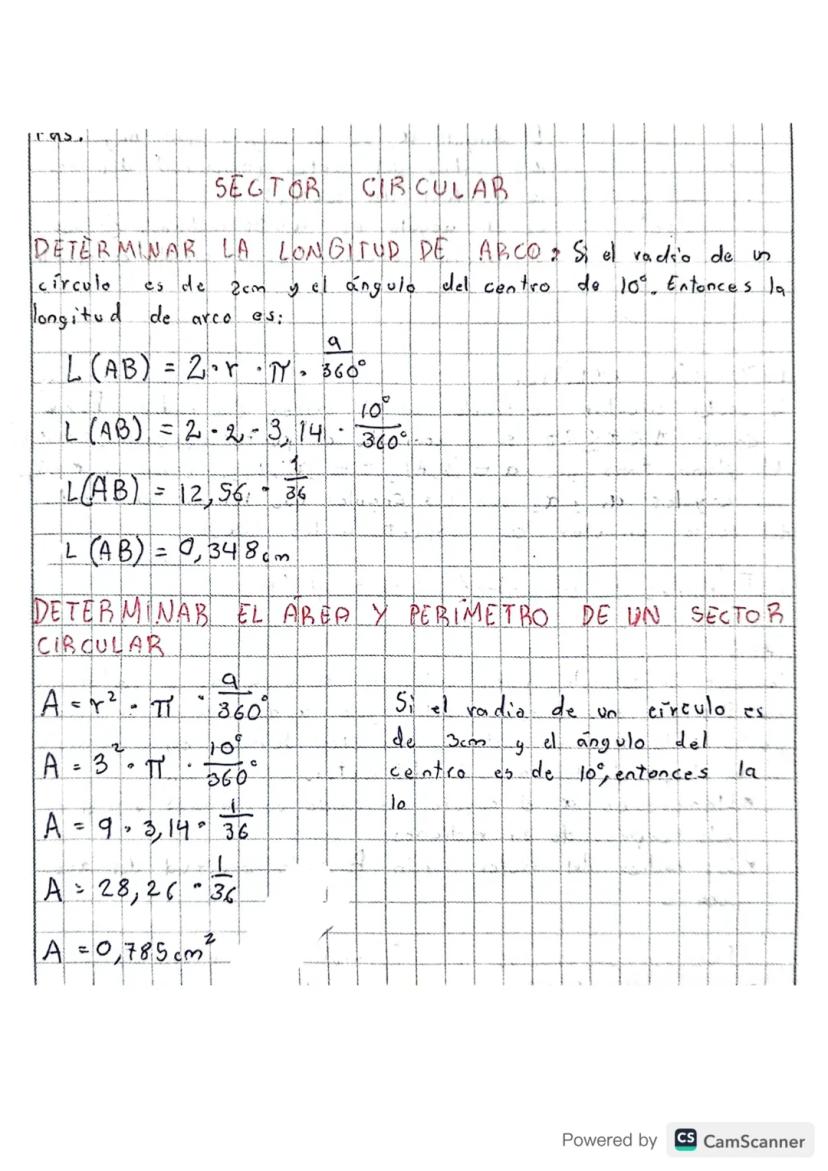 ras.
SECTOR CIRCULAR
DETERMINAR LA LONGITUD DE ARCO: Si el radio de un
círculo es de 2cm y el ángulo del centro de 10°. Entonces la
longitud de arco es:
L (AB) = 2 · r · π · a/360°
L (AB) = 2 · 2 · 3,14 · 10°/360°
L (AB) = 12,56 · 1/36
L (AB) = 0,348cm
DETERMINAR EL ÁREA Y PERÍMETRO DE UN SECTOR
CIRCULAR
A = r² · π · a/360°
A = 3² · π · 10°/360°
A = 9 · 3,14 · 1/36
A = 28,26 · 1/36
A = 0,785cm²
Si el radio de un círculo es
de 3cm y el ángulo del
centro es de 10°, entonces la
lo
Powered by CS CamScanner